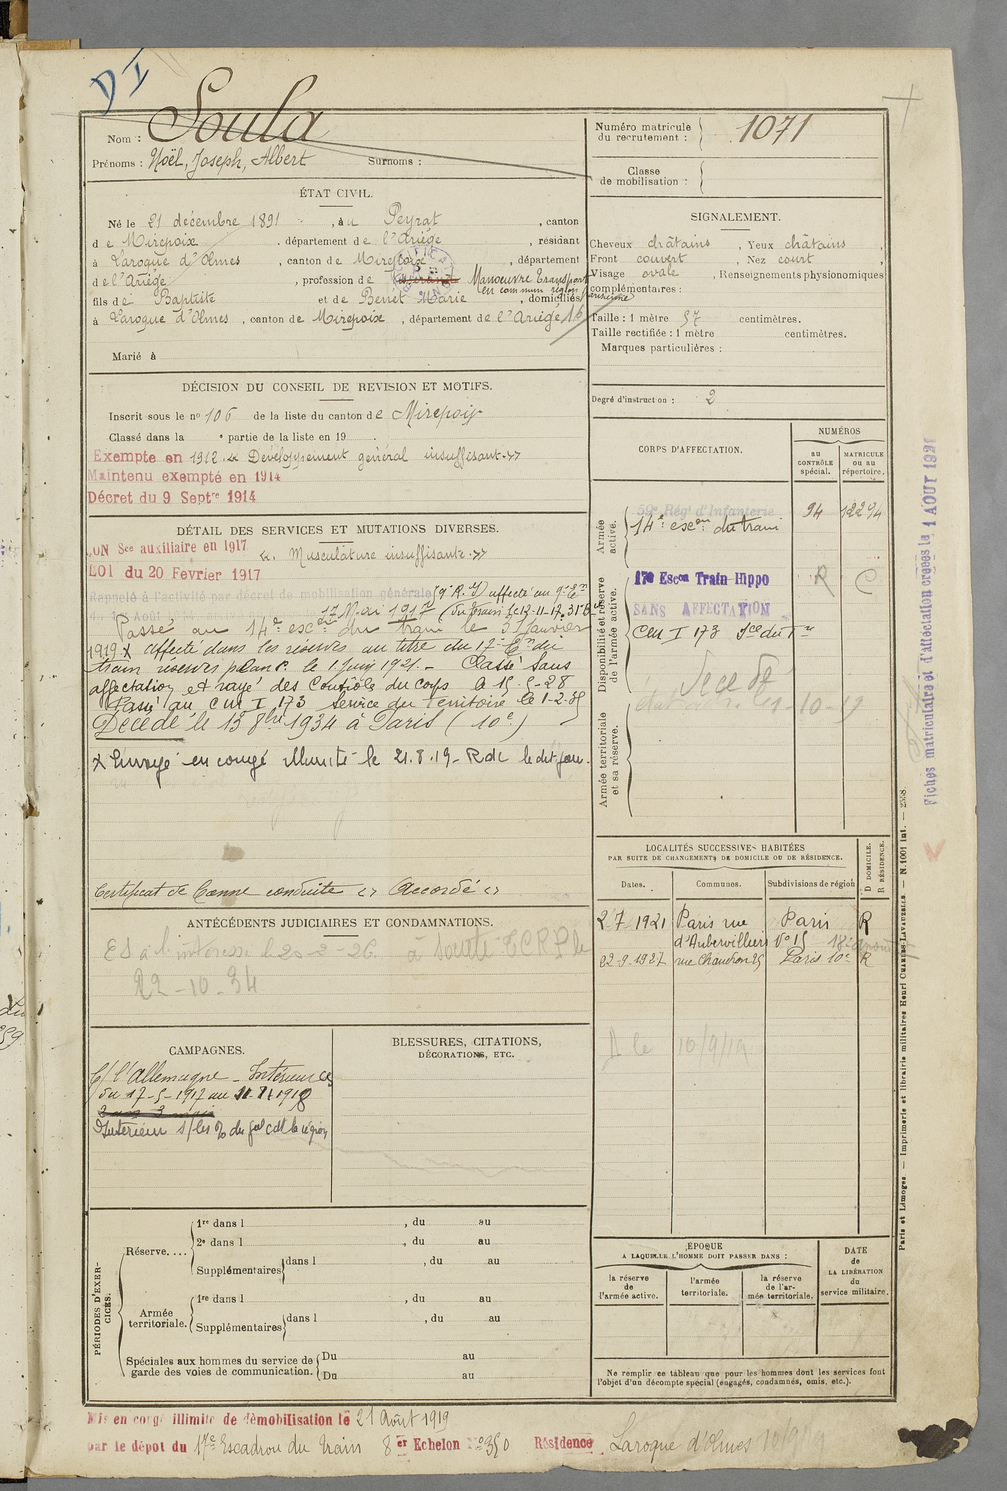 DI
Nom : Soula
Prénoms : Noël, Joseph, Albert Surnoms :
Numéro matricule du recrutement : 1071
Classe de mobilisation :
ÉTAT CIVIL.
Né le 21 décembre 1891, à Peyrat, canton
de Mirepoix, département de l'Ariège, résidant
à Laroque d'Olmes, canton de Mirepoix, département
de l'Ariège, profession de Manœuvre Transport
en commun région parisienne
fils de Baptiste et de Benet Marie, domiciliés
à Laroque d'Olmes, canton de Mirepoix, département de l'Ariège 16
Marié à
SIGNALEMENT.
Cheveux châtains, Yeux châtains,
Front couvert, Nez court,
Visage ovale, Renseignements physionomiques
complémentaires :
Taille : 1 mètre 57 centimètres.
Taille rectifiée : 1 mètre centimètres.
Marques particulières :
Degré d'instruction : 2
DÉCISION DU CONSEIL DE REVISION ET MOTIFS.
Inscrit sous le nº 106 de la liste du canton de Mirepoix
Classé dans la e partie de la liste en 19
Exempté en 1912 « Développement général insuffisant »
Maintenu exempté en 1914
Décret du 9 Septre 1914
DÉTAIL DES SERVICES ET MUTATIONS DIVERSES.
BON Sce auxiliaire en 1917 « Musculature insuffisante »
LOI du 20 Février 1917
Rappelé à l'activité par décret de mobilisation générale
17 Mai 1917
Passé au 14e escon du train le 3 Janvier
1919 X affecté dans les réserves au titre du 17e Em du
train réserves plan P. le 1 Juin 1921.- Classé Sans
affectation et rayé des Contrôle du corps le 15-5-28
Passé au CM I 173 Service du Territoire le 1-2-35
Décédé le 13 8bre 1934 à Paris (10e)
X Envoyé en congé illimité le 21.8.19- Rdc le dit jour.
Certificat de Bonne conduite « Accordé »
CORPS D'AFFECTATION.
NUMÉROS
au CONTRÔLE spécial.
MATRICULE ou au répertoire.
Armée active.
59e Rég! d'Infanterie
14e escon du train 94 12294
Disponibilité et réserve de l'armée active.
17e Escon Train Hippo R C
SANS AFFECTATION
CM I 173 Sce du Tre
Décédé
Armée territoriale et sa réserve.
Fiches matriculaire et d'affectation créées le 1 AOUT 1921
LOCALITÉS SUCCESSIVES HABITÉES
PAR SUITE DE CHANGEMENTS DE DOMICILE OU DE RÉSIDENCE.
Dates. Communes. Subdivisions de région D DOMICILE. R RÉSIDENCE.
2-7-1921 Paris rue Paris R
d'Aubervilliers Vº 15
22-9-1927 rue Chaudron 25 Paris 10e R
D le 10/9/19
ANTÉCÉDENTS JUDICIAIRES ET CONDAMNATIONS.
22-10-34
CAMPAGNES.
C/ l'Allemagne - Intérieur CS
du 17-5-1917 au 11-11-1918
Intérieur
BLESSURES, CITATIONS,
DÉCORATIONS, ETC.
PÉRIODES D'EXERCICES.
Réserve....
1re dans l , du au
2e dans l , du au
Supplémentaires dans l , du au
Armée territoriale.
1re dans l , du au
Supplémentaires dans l , du au
Spéciales aux hommes du service de garde des voies de communication.
Du au
Du au
ÉPOQUE
A LAQUELLE L'HOMME DOIT PASSER DANS :
la réserve de l'armée active.
l'armée territoriale.
la réserve de l'armée territoriale.
DATE de LA LIBÉRATION du service militaire.
Ne remplir ce tableau que pour les hommes dont les services font
l'objet d'un décompte spécial (engagés, condamnés, omis, etc.).
Paris et Limoges. — Imprimerie et librairie militaires Henri CHARLES-LAVAUZELLE. — N. 1001 int. —
Mis en congé illimité de démobilisation le 21 Août 1919
par le dépot du 17e Escadron du Train 8er Echelon Nº 350 Résidence Laroque d'Olmes 10/9/19